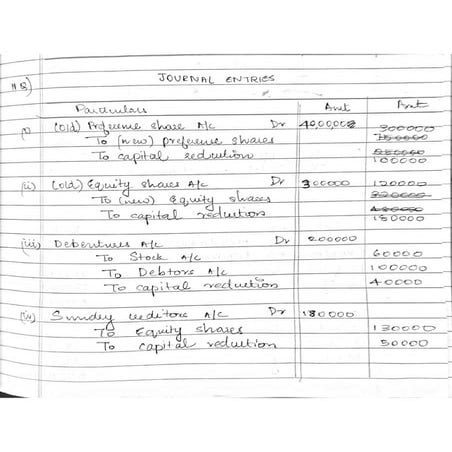 11 B)
JOURNAL ENTRIES
Particulars Amt Amt
(i) (old) Preference share A/c Dr 40,00,000 300000
To (new) preference shares
To capital reduction 100000
(ii) (old) Equity shares A/c Dr 300000 120000
To (new) Equity shares
To capital reduction 180000
(iii) Debentures A/c Dr 200000
To Stock A/c 60000
To Debtors A/c 100000
To capital reduction 40000
(iv) Sundry creditors A/c Dr 180000
To Equity shares 130000
To capital reduction 50000